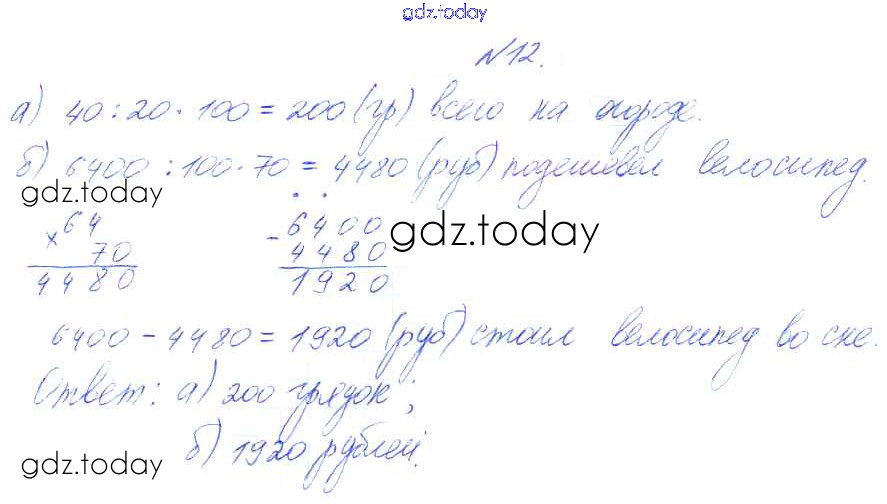 gdz.today
№12.
а) 40 : 20 · 100 = 200 (гр) всего на огороде.
б) 6400 : 100 · 70 = 4480 (руб) подешевел велосипед.
gdz.today
× 64
70
4480
- 6400
4480
1920
gdz.today
6400 - 4480 = 1920 (руб) стоил велосипед во сне.
Ответ: а) 200 грядок;
б) 1920 рублей.
gdz.today